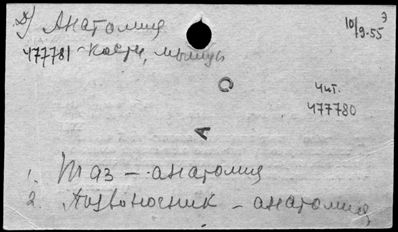 Д) Анатомия
10/9-55 Э
477781 - кости, мышцы
Чит.
477780
О
А
1. Таз - анатомия
2. Позвоночник - анатомия